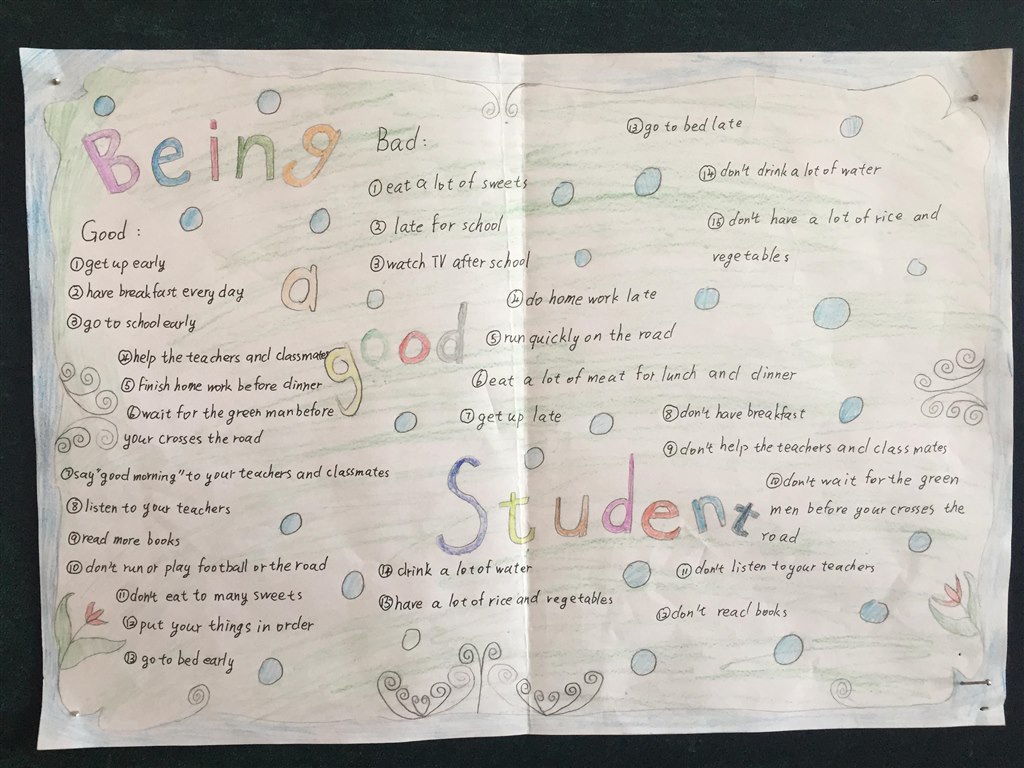 Being
a
good
Student
Good :
①get up early
②have breakfast every day
③go to school early
④help the teachers and classmates
⑤finish home work before dinner
⑥wait for the green man before
your crosses the road
⑦say"good morning"to your teachers and classmates
⑧listen to your teachers
⑨read more books
⑩don't run or play football or the road
⑪don't eat to many sweets
⑫put your things in order
⑬go to bed early
⑭drink a lot of water
⑮have a lot of rice and vegetables
Bad:
①eat a lot of sweets
②late for school
③watch TV after school
④do home work late
⑤run quickly on the road
⑥eat a lot of meat for lunch and dinner
⑦get up late
⑧don't have breakfast
⑨don't help the teachers and class mates
⑩don't wait for the green
men before your crosses the
road
⑪don't listen to your teachers
⑫don't read books
⑬go to bed late
⑭don't drink a lot of water
⑮don't have a lot of rice and
vegetables